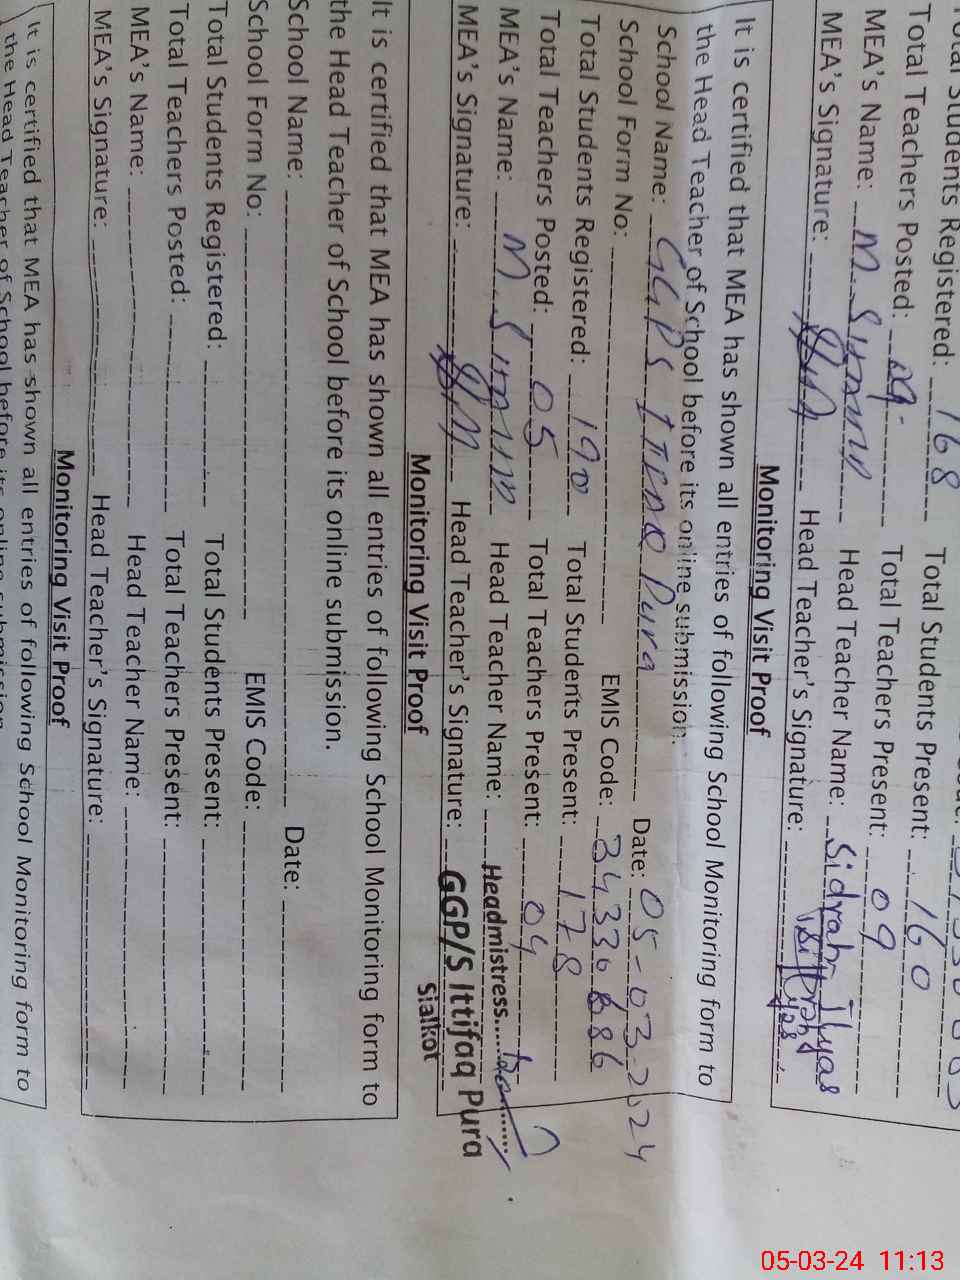 Total Students Registered: 168 Total Students Present: 160
Total Teachers Posted: 09 Total Teachers Present: 09
MEA's Name: Head Teacher Name: Sidrah Ilyas
MEA's Signature: Head Teacher's Signature:
Monitoring Visit Proof
It is certified that MEA has shown all entries of following School Monitoring form to
the Head Teacher of School before its online submission.
School Name: GGPS Pura Date: 05-03-2024
School Form No: EMIS Code:
Total Students Registered: 190 Total Students Present: 178
Total Teachers Posted: 05 Total Teachers Present: 04
MEA's Name: Head Teacher Name: Headmistress
MEA's Signature: Head Teacher's Signature: GGP/S Ittifaq Pura
Sialkot
Monitoring Visit Proof
It is certified that MEA has shown all entries of following School Monitoring form to
the Head Teacher of School before its online submission.
School Name: Date:
School Form No: EMIS Code:
Total Students Registered: Total Students Present:
Total Teachers Posted: Total Teachers Present:
MEA's Name: Head Teacher Name:
MEA's Signature: Head Teacher's Signature:
Monitoring Visit Proof
It is certified that MEA has shown all entries of following School Monitoring form to
the Head Teacher of School before its online submission
05-03-24 11:13